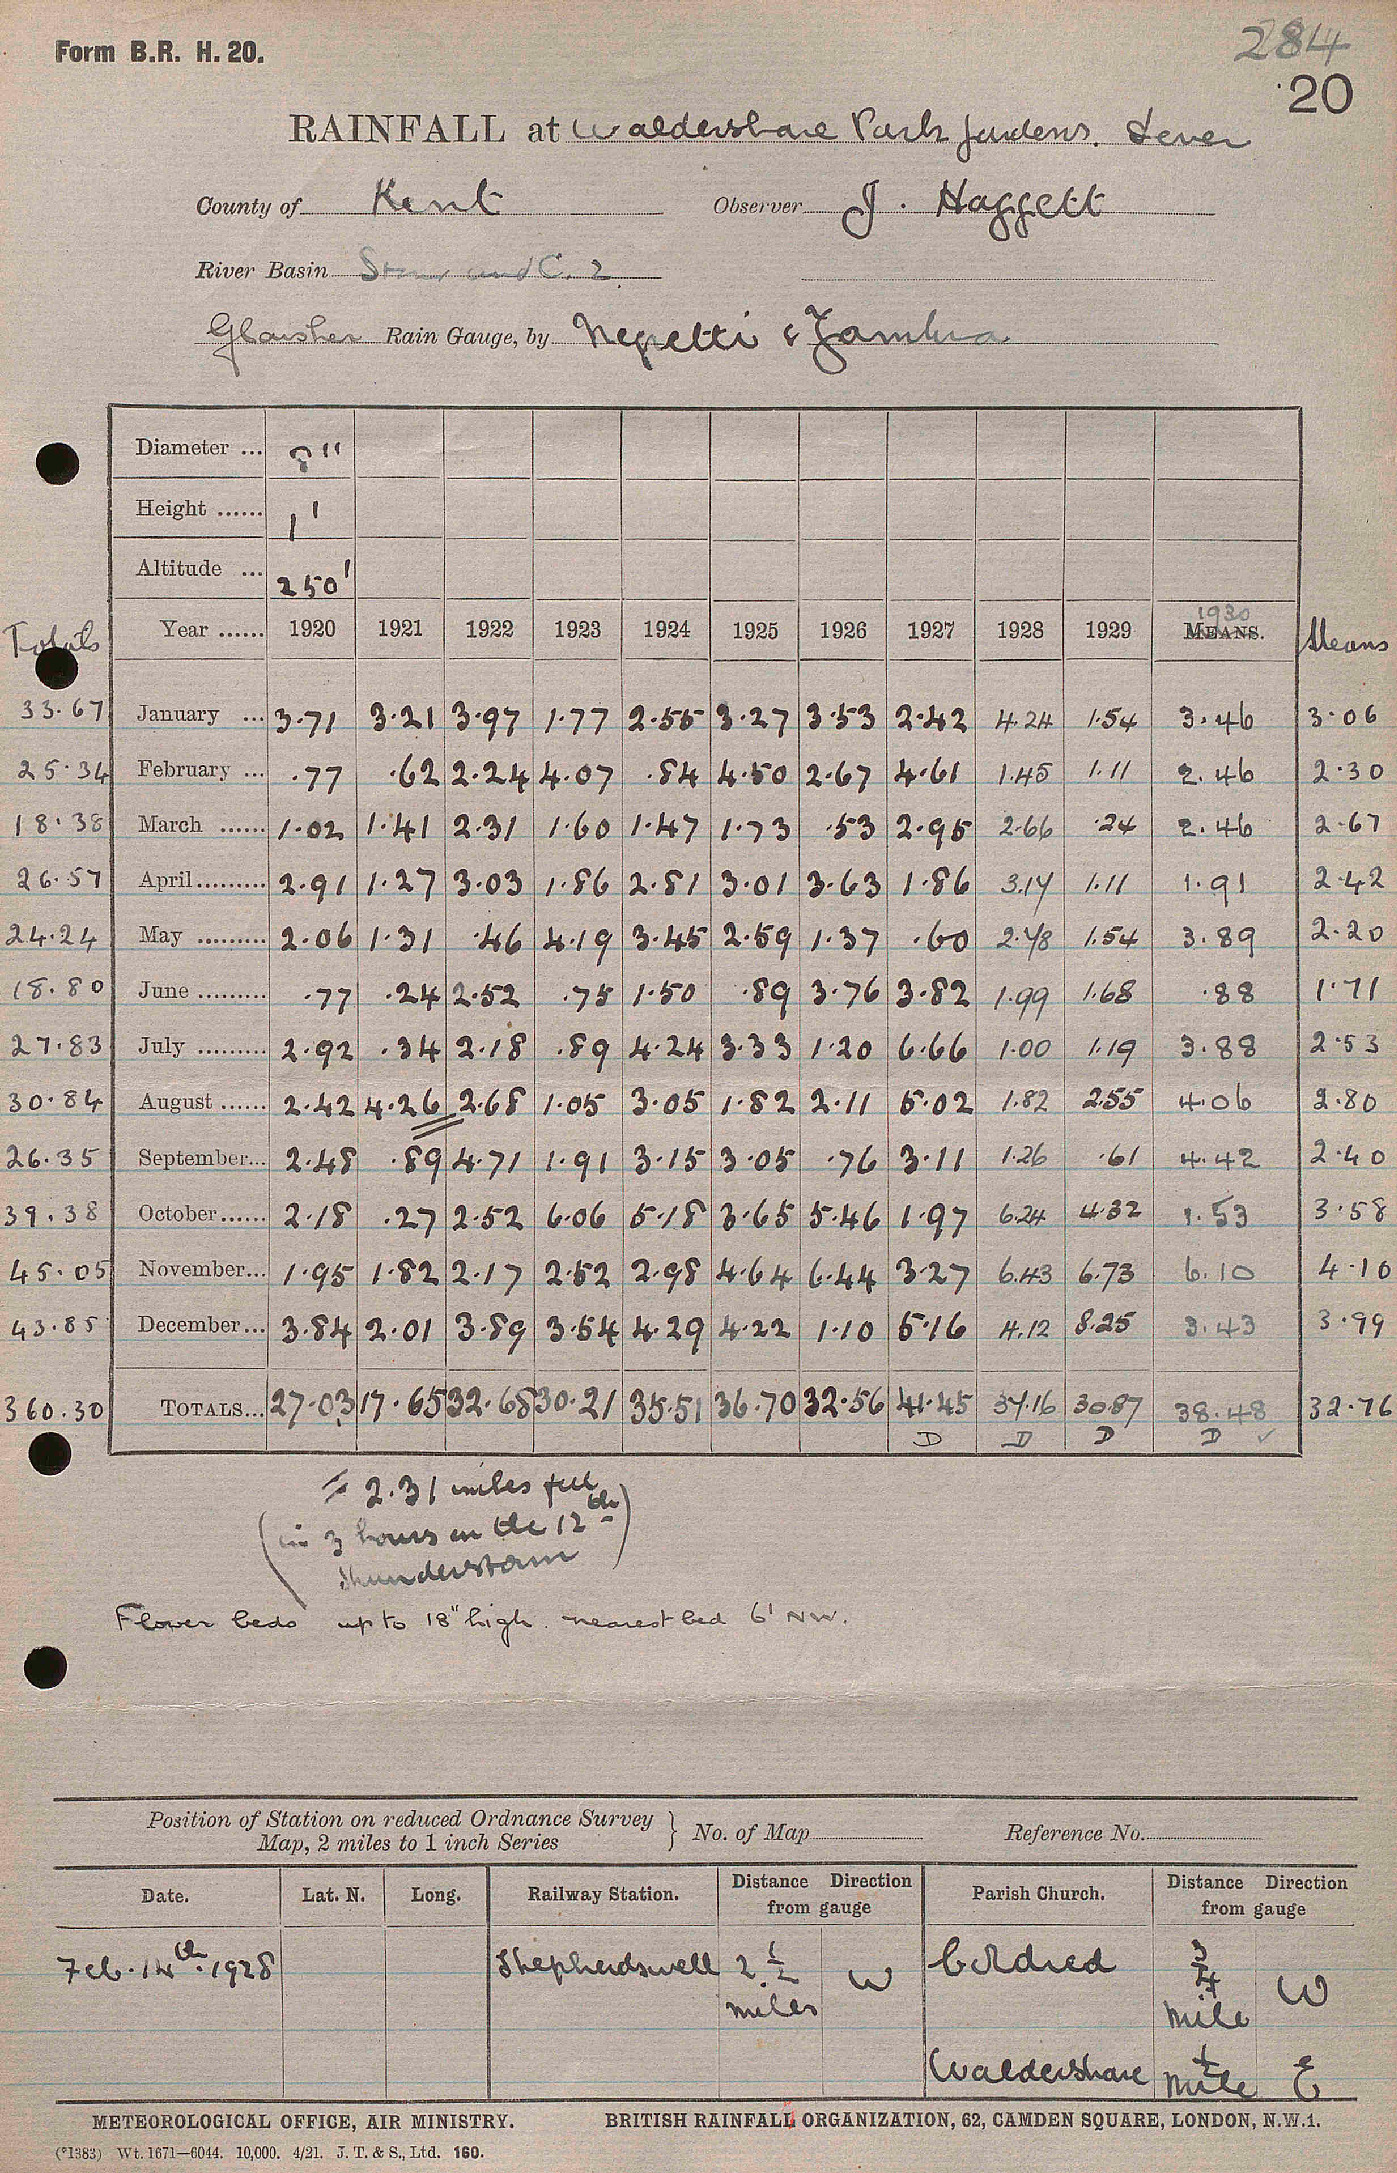 Form B.R. H. 20.
284
20
RAINFALL at Waldershare Park Gardens. Dover
County of Kent Observer J. Haggett
River Basin Stour and C. 2
Glaisher Rain Gauge, by Negretti & Zambra
Diameter ... 8"
Height ...... 1'
Altitude ... 250'
Totals Year ...... 1920 1921 1922 1923 1924 1925 1926 1927 1928 1929 1930 MEANS. Means
33.67 January ... 3.71 3.21 3.97 1.77 2.55 3.27 3.53 2.42 4.24 1.54 3.46 3.06
25.34 February ... .77 .62 2.24 4.07 .84 4.50 2.67 4.61 1.45 1.11 2.46 2.30
18.38 March ...... 1.02 1.41 2.31 1.60 1.47 1.73 .53 2.95 2.66 .24 2.46 2.67
26.57 April ......... 2.91 1.27 3.03 1.86 2.81 3.01 3.63 1.86 3.17 1.11 1.91 2.42
24.24 May ......... 2.06 1.31 .46 4.19 3.45 2.59 1.37 .60 2.78 1.54 3.89 2.20
18.80 June ......... .77 .24 2.52 .75 1.50 .89 3.76 3.82 1.99 1.68 .88 1.71
27.83 July ......... 2.92 .34 2.18 .89 4.24 3.33 1.20 6.66 1.00 1.19 3.88 2.53
30.84 August ...... 2.42 4.26 2.68 1.05 3.05 1.82 2.11 5.02 1.82 2.55 4.06 2.80
26.35 September... 2.48 .89 4.71 1.91 3.15 3.05 .76 3.11 1.26 .61 4.42 2.40
39.38 October...... 2.18 .27 2.52 6.06 5.18 3.65 5.46 1.97 6.24 4.32 1.53 3.58
45.05 November... 1.95 1.82 2.17 2.52 2.98 4.64 6.44 3.27 6.43 6.73 6.10 4.10
43.85 December... 3.84 2.01 3.89 3.54 4.29 4.22 1.10 5.16 4.12 8.25 3.43 3.99
360.30 TOTALS... 27.03 17.65 32.68 30.21 35.51 36.70 32.56 41.45 37.16 30.87 38.48 32.76
D D D D ✓
= 2.31 inches fell
(in 3 hours on the 12th)
thunderstorm
Flower beds up to 18" high. nearest bed 6' NW.
Position of Station on reduced Ordnance Survey
Map, 2 miles to 1 inch Series } No. of Map Reference No.
Date. Lat. N. Long. Railway Station. Distance Direction from gauge Parish Church. Distance Direction from gauge
Feb. 14th. 1928 Shepherdswell 2 1/2 miles W Coldred 3/4 mile W
Waldershare 1/2 mile E
METEOROLOGICAL OFFICE, AIR MINISTRY. BRITISH RAINFALL ORGANIZATION, 62, CAMDEN SQUARE, LONDON, N.W.1.
(*1383) Wt. 1671—6044. 10,000. 4/21. J. T. & S., Ltd. 160.